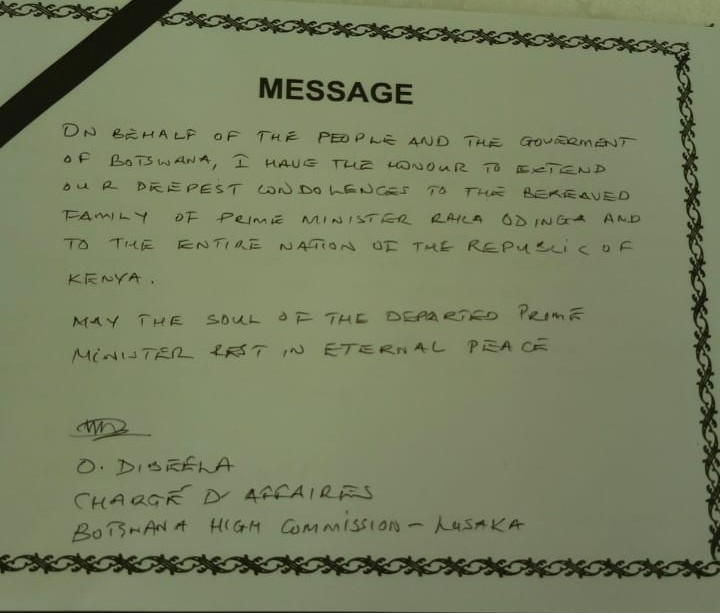 MESSAGE
ON BEHALF OF THE PEOPLE AND THE GOVERMENT
OF BOTSWANA, I HAVE THE HONOUR TO EXTEND
OUR DEEPEST CONDOLENCES TO THE BEREAVED
FAMILY OF PRIME MINISTER RAILA ODINGA AND
TO THE ENTIRE NATION OF THE REPUBLIC OF
KENYA.
MAY THE SOUL OF THE DEPARTED PRIME
MINISTER REST IN ETERNAL PEACE
O. DIBEELA
CHARGÉ D'AFFAIRES
BOTSWANA HIGH COMMISSION - LUSAKA